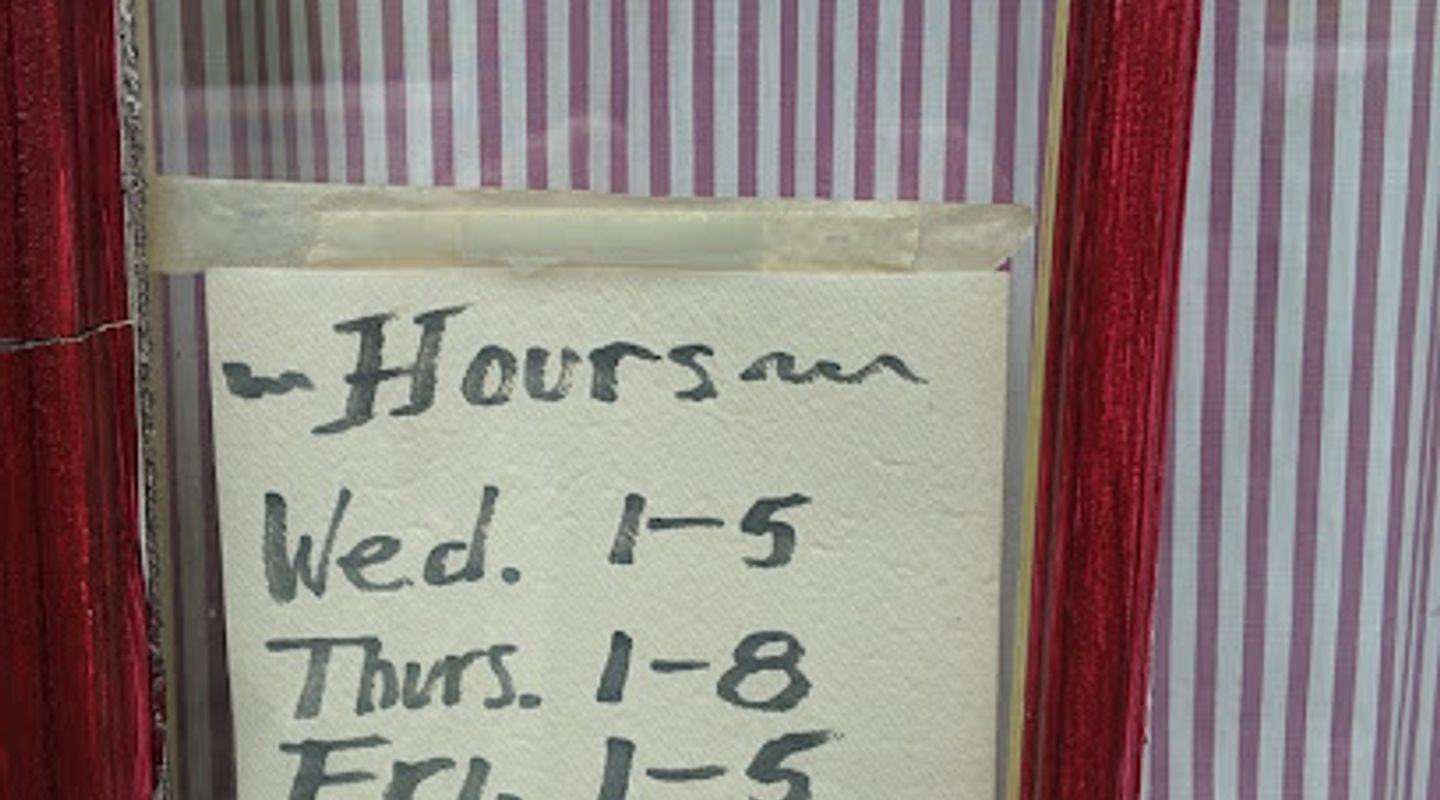 ~Hours~
Wed. 1-5
Thurs. 1-8
Fri. 1-5